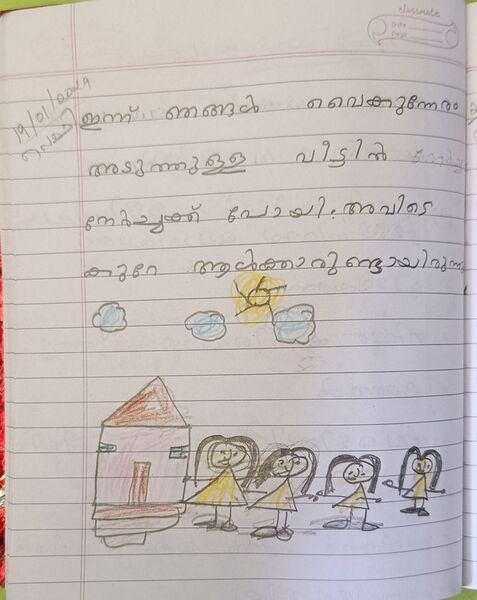 classmate
Date
Page
19/01/2024
വെള്ളി
ഇന്ന് ഞങ്ങൾ വൈകുന്നേരം
അടുത്തുള്ള വീട്ടിൽ
നേർച്ചക്ക് പോയി. അവിടെ
കുറേ ആൾക്കാരുണ്ടായിരുന്നു